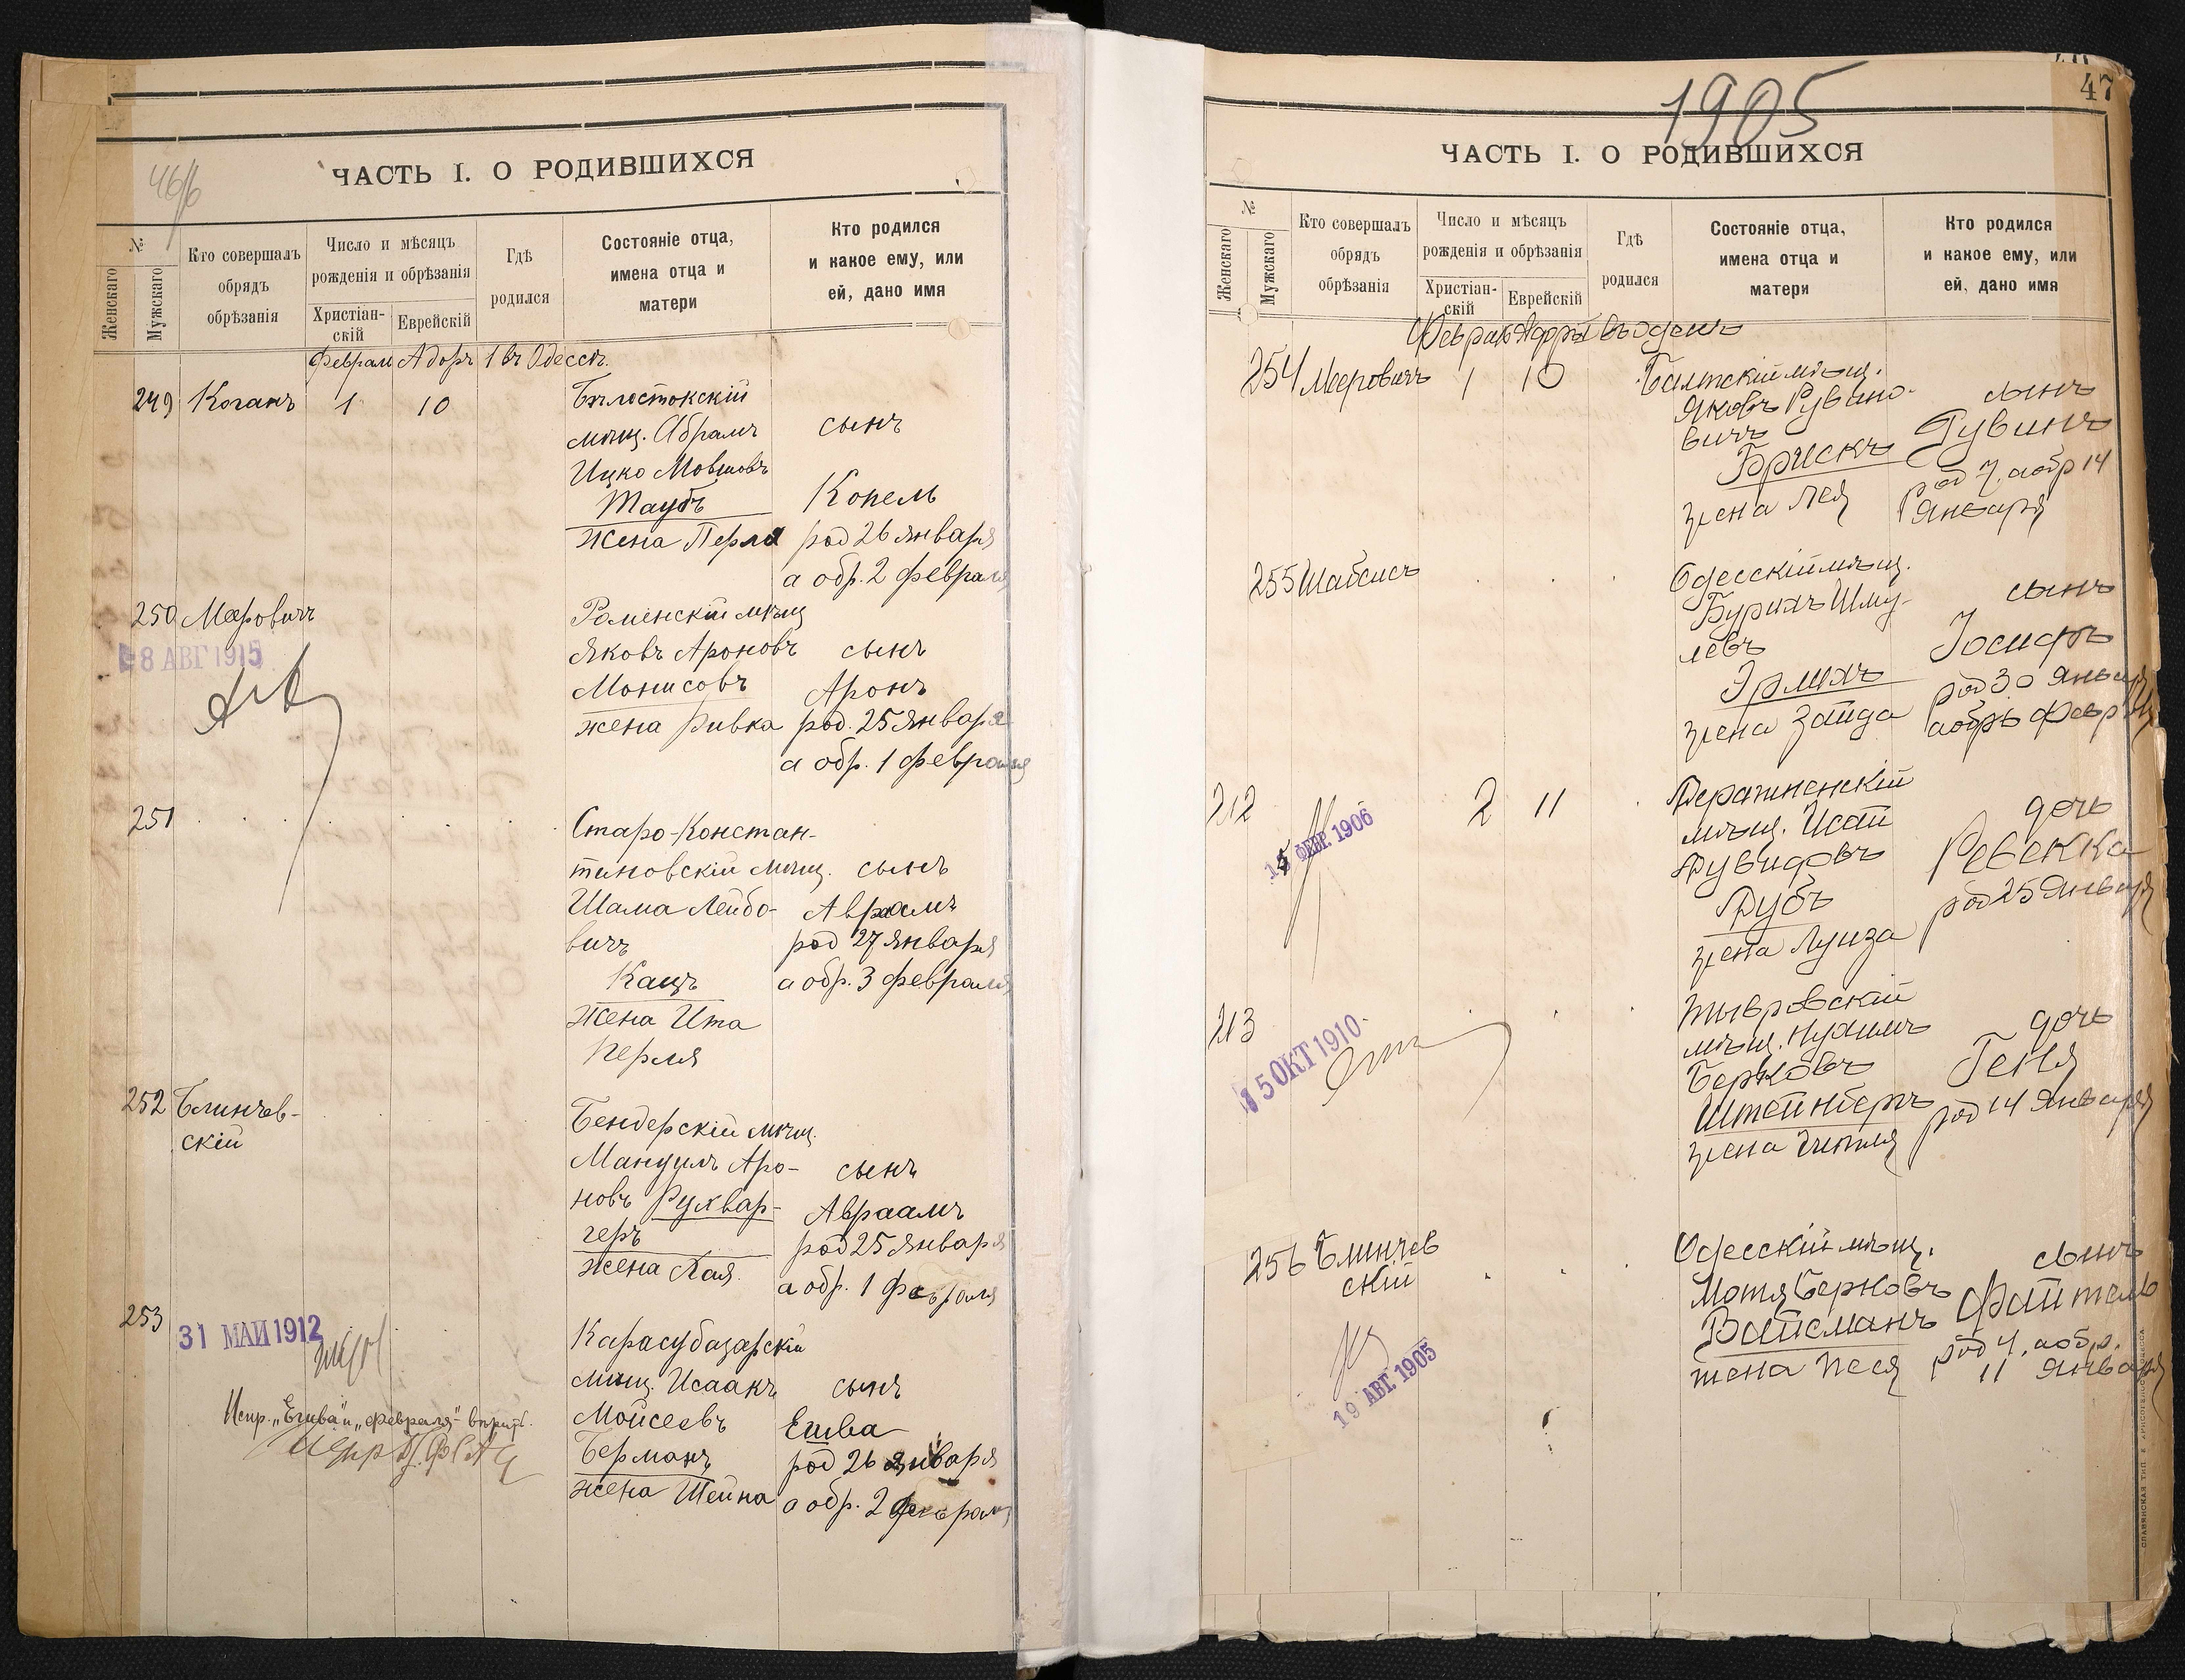 46/б
ЧАСТЬ I. О РОДИВШИХСЯ
№
Женскаго
Мужскаго
Кто совершалъ обрядъ обрѣзанія
Число и мѣсяцъ рожденія и обрѣзанія
Христіан-скій
Еврейскій
Гдѣ родился
Состояніе отца, имена отца и матери
Кто родился и какое ему, или ей, дано имя
Февраля Адоръ 1 въ Одессѣ.
249 Коганъ 1 10 Бѣлостокскій
мѣщ. Абрамъ сынъ
Ицко Мовшовъ
Таубъ Копель
жена Перля род 26 января
а обр. 2 февраля
250 Меѳровичъ Роменскій мѣщ
8 АВГ 1915
Яковъ Ароновъ сынъ
Монисовъ Аронъ
жена Ривка род. 25 января
а обр. 1 февраля
251 Старо-Констан-
тиновскій мѣщ. сынъ
Шама Лейбо- Авраамъ
вичъ род 27 января
Кацъ а обр. 3 февраля
жена Ита
Перля
252 Блинчев-
скій
Бендерскій мѣщ.
Мандуль Аро- сынъ
новъ Рухвар- Авраамъ
геръ род 25 января
жена Хая. а обр. 1 февраля
253
31 МАЙ 1912
Карасубазарскій
мѣщ. Исаакъ сынъ
Испр. „Ешва" и „февраля"
Мойсеевъ Ешва
Берманъ род 26 января
жена Шейна а обр. 2 февраля
1905
47
ЧАСТЬ I. О РОДИВШИХСЯ
№
Женскаго
Мужскаго
Кто совершалъ обрядъ обрѣзанія
Число и мѣсяцъ рожденія и обрѣзанія
Христіан-скій
Еврейскій
Гдѣ родился
Состояніе отца, имена отца и матери
Кто родился и какое ему, или ей, дано имя
254 Мееровичъ 1 10 Балтскій мѣщ.
Яковъ Рувино- сынъ
вичъ Рувинъ
Брискъ род 7, а обр 14
жена Лея Января
255 Шабсисъ Одесскій мѣщ.
Бурихъ Шму- сынъ
левъ Іосифъ
Эрлихъ род 30 Января
жена Зайда а обр 6 Февр
212 2 11 Деражненскій
15 ФЕВР. 1906
мѣщ. Исай дочь
Дувидовъ Ревекка
Дубъ род 25 Января
жена Луиза
213 Тывровскій
15 ОКТ 1910
мѣщ. Нухимъ дочь
Берковъ Геня
Штейнберъ род 14 Января
жена Гитля
256 Блинчев
скій
Одесскій мѣщ. сынъ
Мотя Берковъ Файтель
Вайсманъ род 4, а обр.
жена Песя 11 Января
19 АВГ. 1905